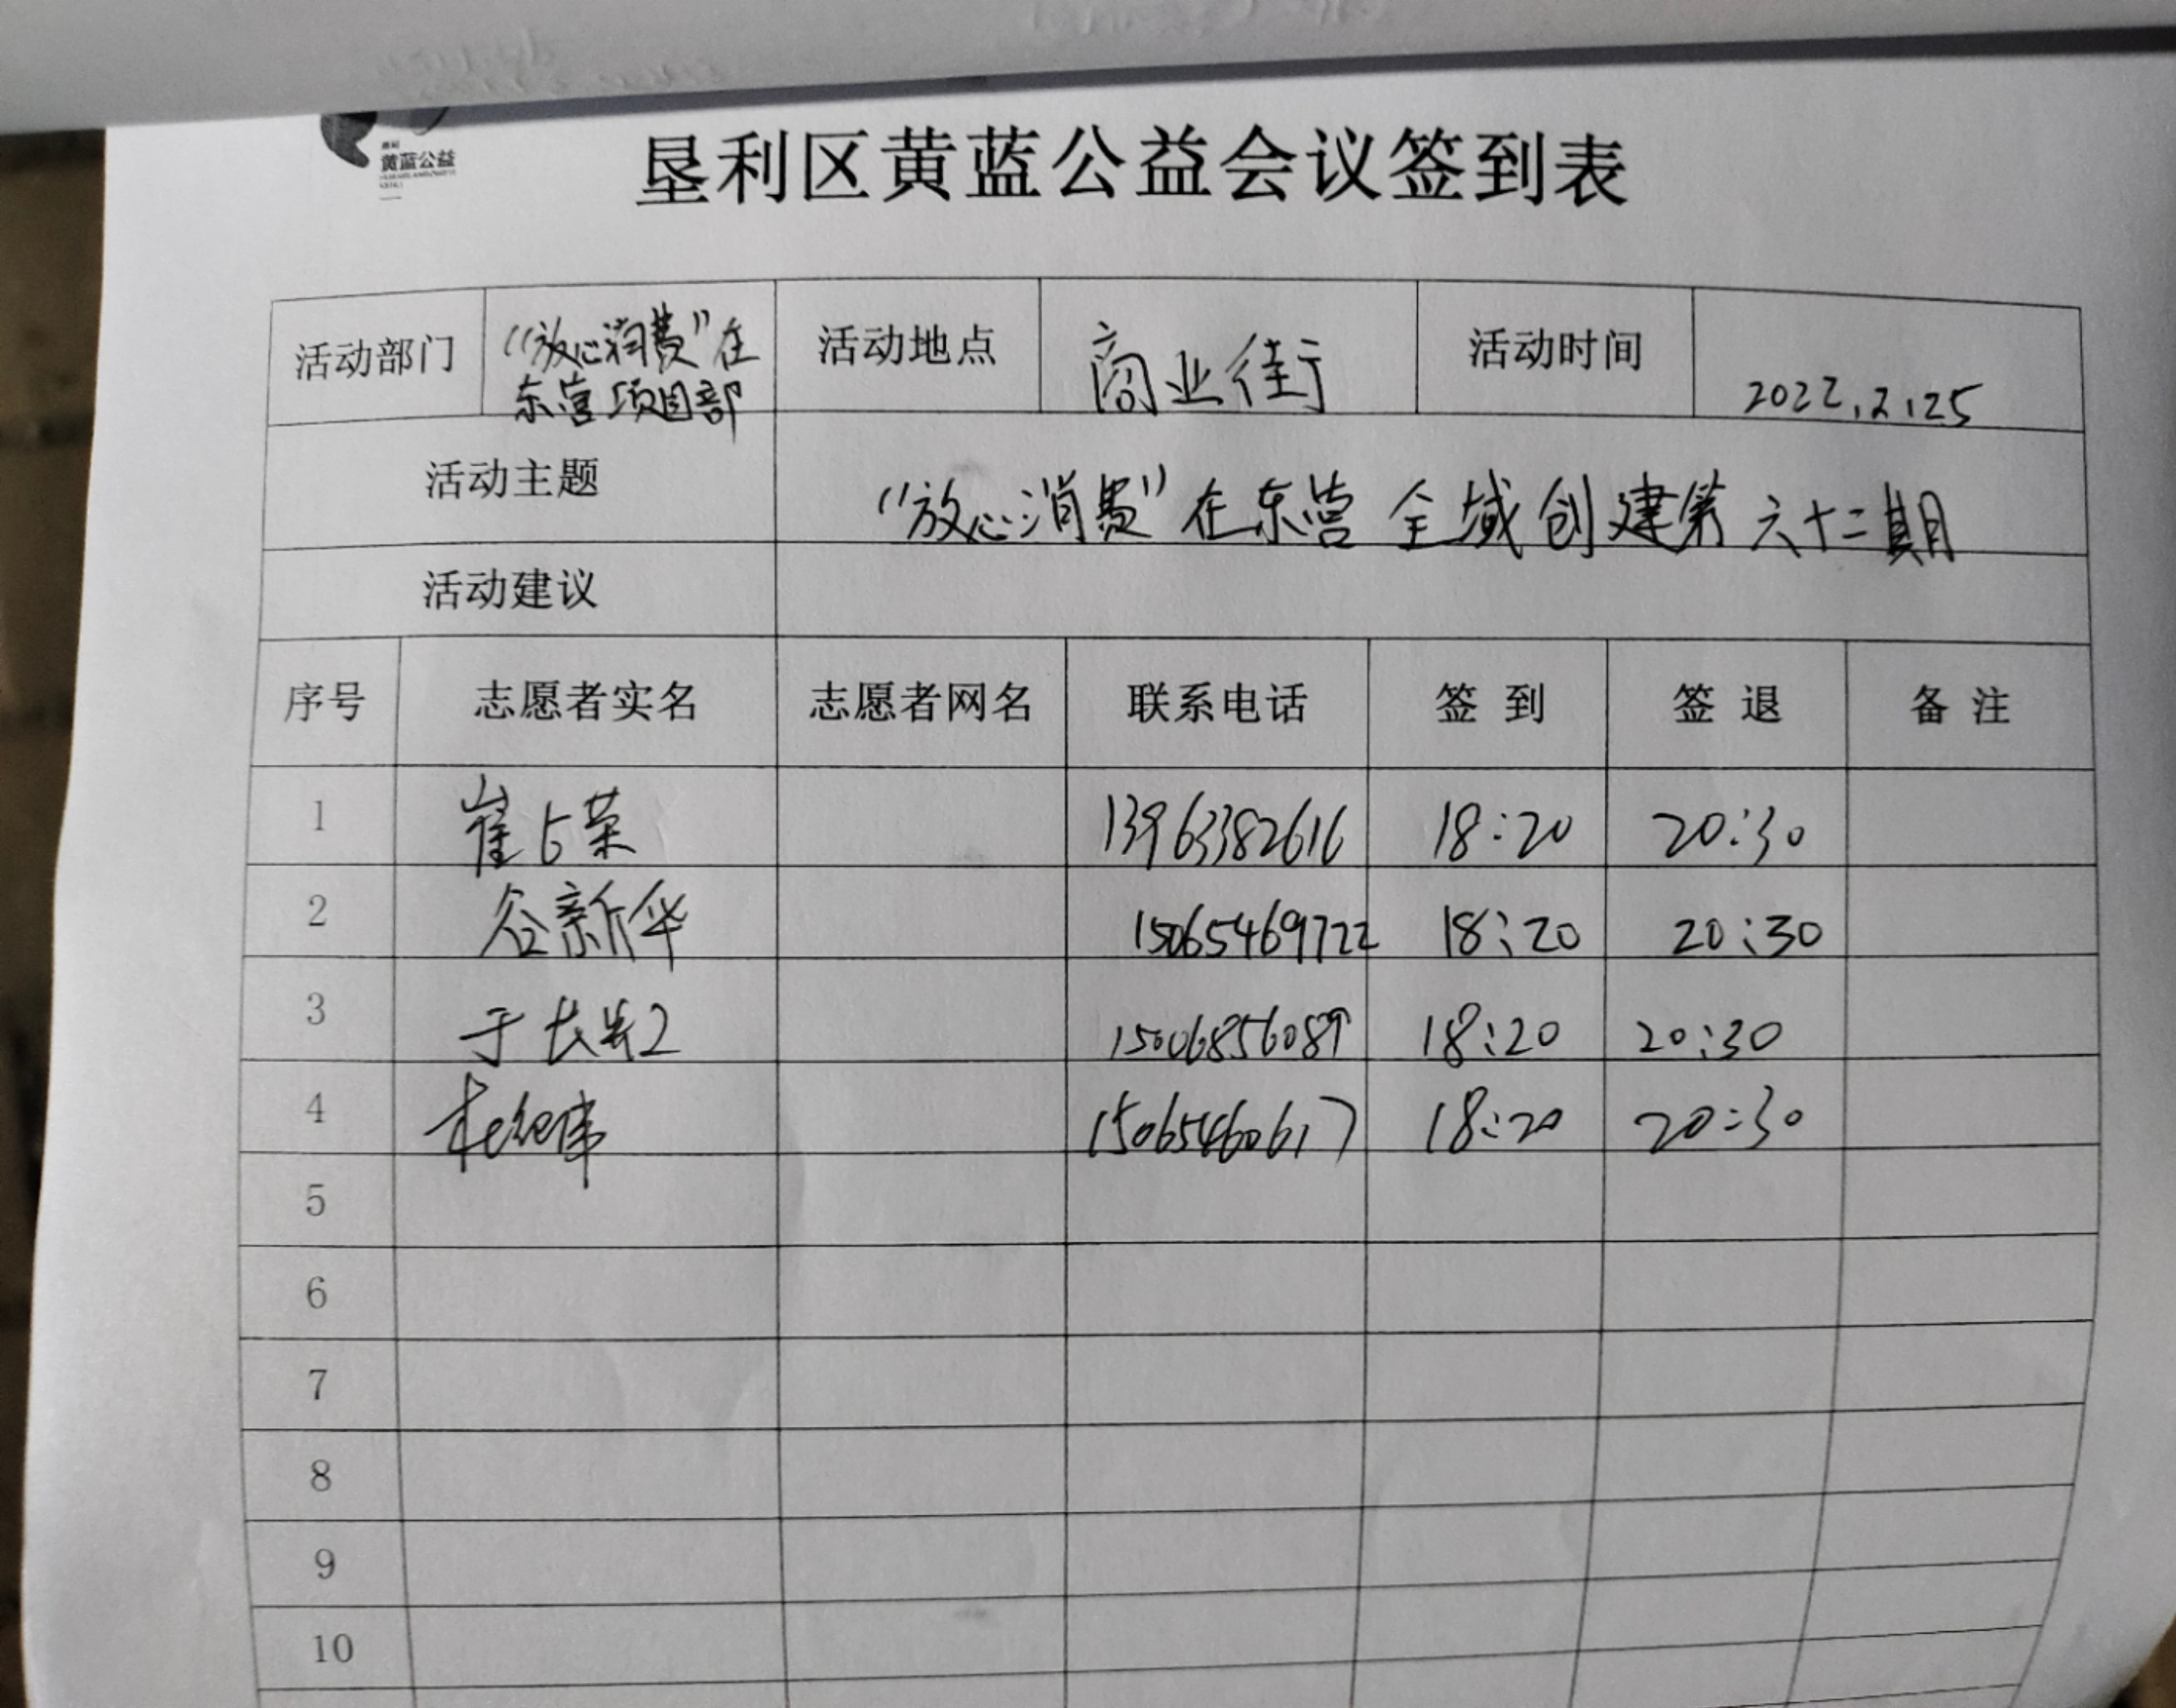 黄蓝公益
垦利区黄蓝公益会议签到表
活动部门 “放心消费”在东营项目部 活动地点 商业街 活动时间 2022.2.25
活动主题 “放心消费”在东营全域创建第六十二期
活动建议
序号 志愿者实名 志愿者网名 联系电话 签到 签退 备注
1 崔占荣 13963382616 18:20 20:30
2 谷新华 15065469722 18:20 20:30
3 于长 15006856089 18:20 20:30
4 杜 15065460617 18:20 20:30
5
6
7
8
9
10